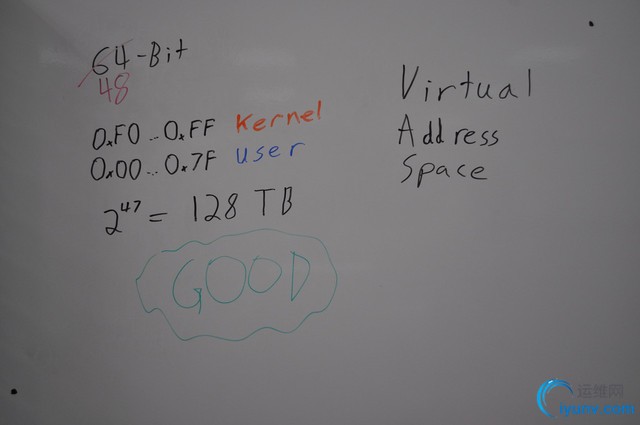 64-Bit
48
0xF0...0xFF Kernel
0x00...0x7F user
2^47 = 128 TB
GOOD
Virtual
Address
Space
运维网
iyunv.com